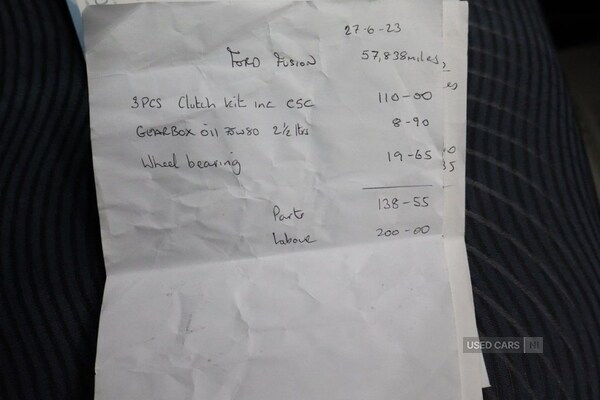 27-6-23
FORD FUSION 57,838miles,
3PCS Clutch kit inc CSC 110-00
GEARBOX OIL 75W80 2½ ltrs 8-90
Wheel bearing 19-65
Parts 138-55
Labour 200-00
USED CARS NI